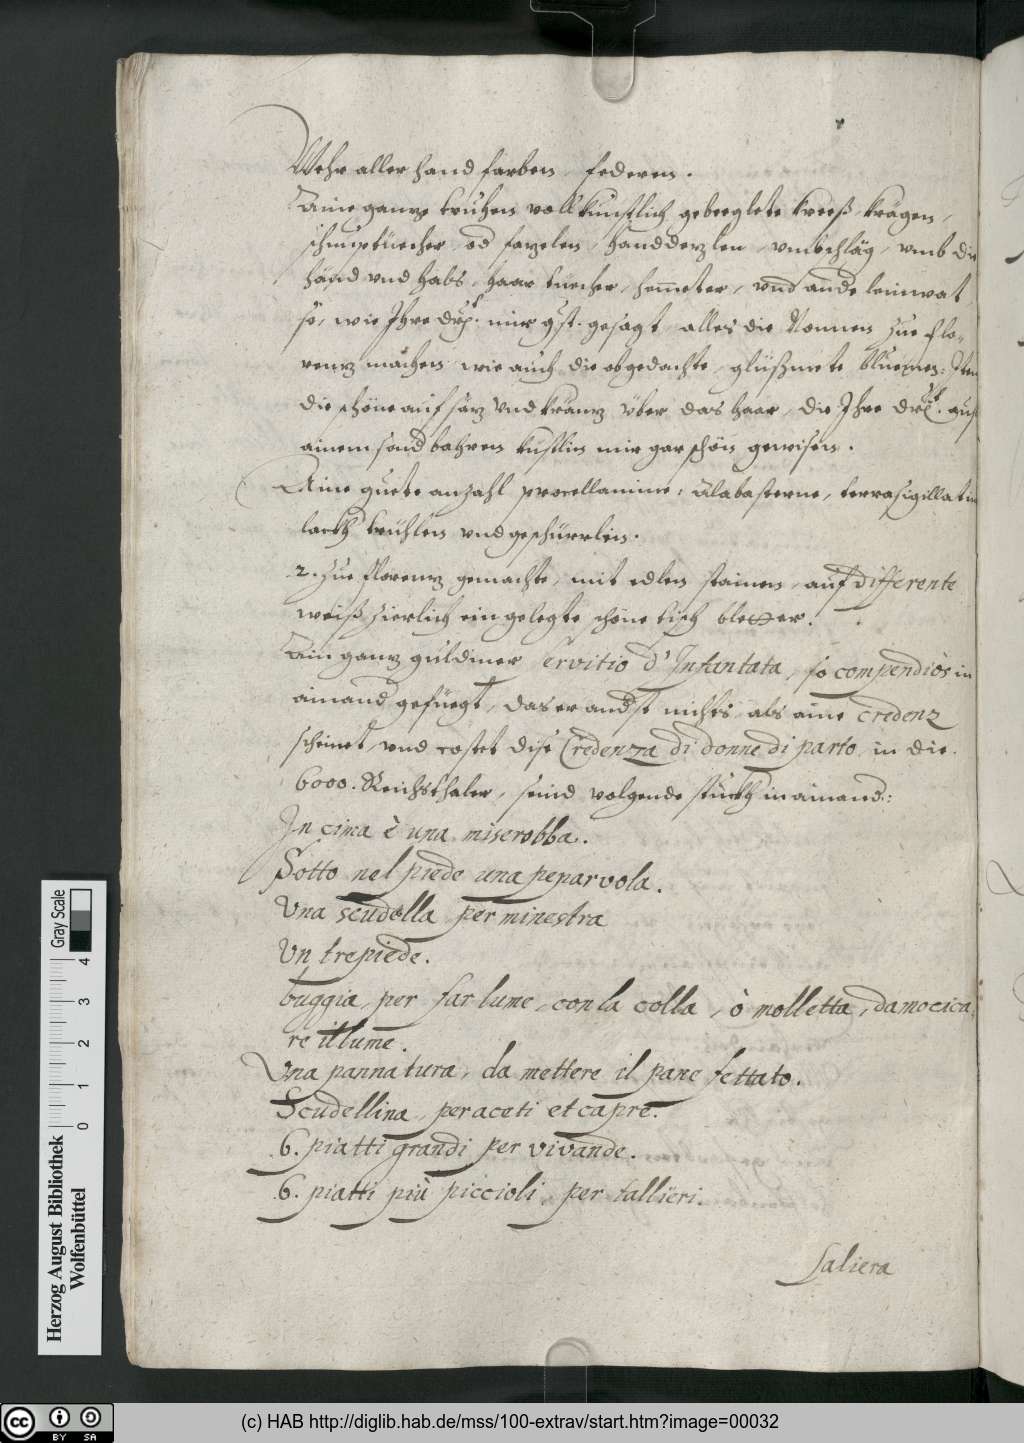 Mehr allerhand farben federen.
Aine ganze truhen voll künstlich gebeeglete kreeß krägen,
schnuptüecher, od fazelen, handderzlen, vmbschläg, vmb die
händ vnd halß, haar tüecher, hemmeter, vnd ande leinwat
so, wie Ihre Drl. mir gst. gesagt, alles die Nonnen zue Flo-
renz machen wie auch die obgedachte, glißmete bluemen: Item
die schöne aufsäz vnd kränz über das haar, die Ihre Drl. auß
ainem sonderbahren kästlin mir gar schön gewisen.
Aine guete anzahl procellanine, alabasterne, terra sigillatin
lackh krüehlen vnd geschürrlin.
2. Zue Florenz gemachte, mit edlen stainen, auf differente
weiß zierlich eingelegte schöne tisch bletter.
Ain ganz guldiner Servitio d'Infantata, so compendiòs in
ainand gefüegt, das er anderst nichts, als aine credenz
scheinet, vnd costet dise Credenza di donne di parto, in die
6000. Reichsthaler, seind volgende stuckh in ainand:
In cima è una miserobba.
Sotto nel piede una peparvola.
Una scudella per minestra
Un trepiede.
buggia, per far lume, con la colla, ò molletta, da mocica
re il lume.
Una pannatura, da mettere il pane fettato.
Scudellina, per aceti et capre.
6. piatti grandi per vivande.
6. piatti più piccioli, per tallieri.
Saliera
Herzog August Bibliothek
Wolfenbüttel
0 1 2 3 4
Gray Scale
cc BY SA
(c) HAB http://diglib.hab.de/mss/100-extrav/start.htm?image=00032